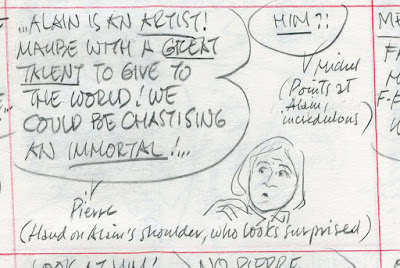 ...ALAIN IS AN ARTIST!
MAYBE WITH A GREAT
TALENT TO GIVE TO
THE WORLD! WE
COULD BE CHASTISING
AN IMMORTAL!...
Pierre
(Hand on Alain's shoulder, who looks surprised)
HIM?!
Michel
(Points at
Alain,
incredulous)
LOOK AT HIM!
NO PIERRE